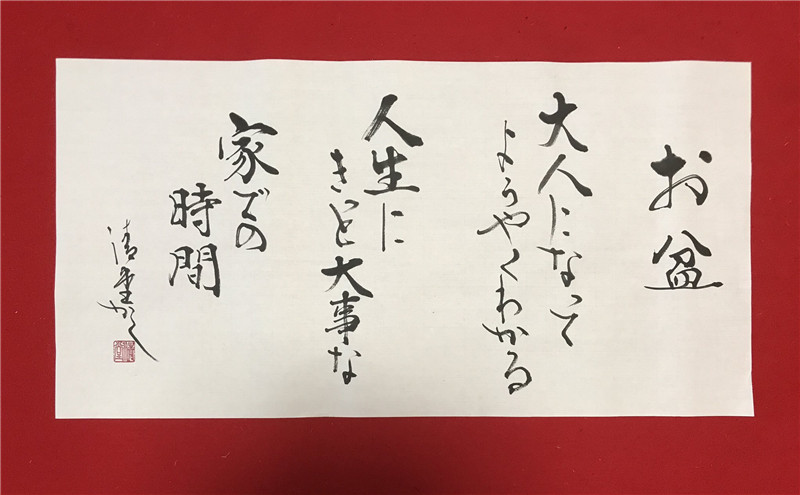 お盆
大人になって
ようやくわかる
人生に
きっと大事な
家での
時間
清雲かく